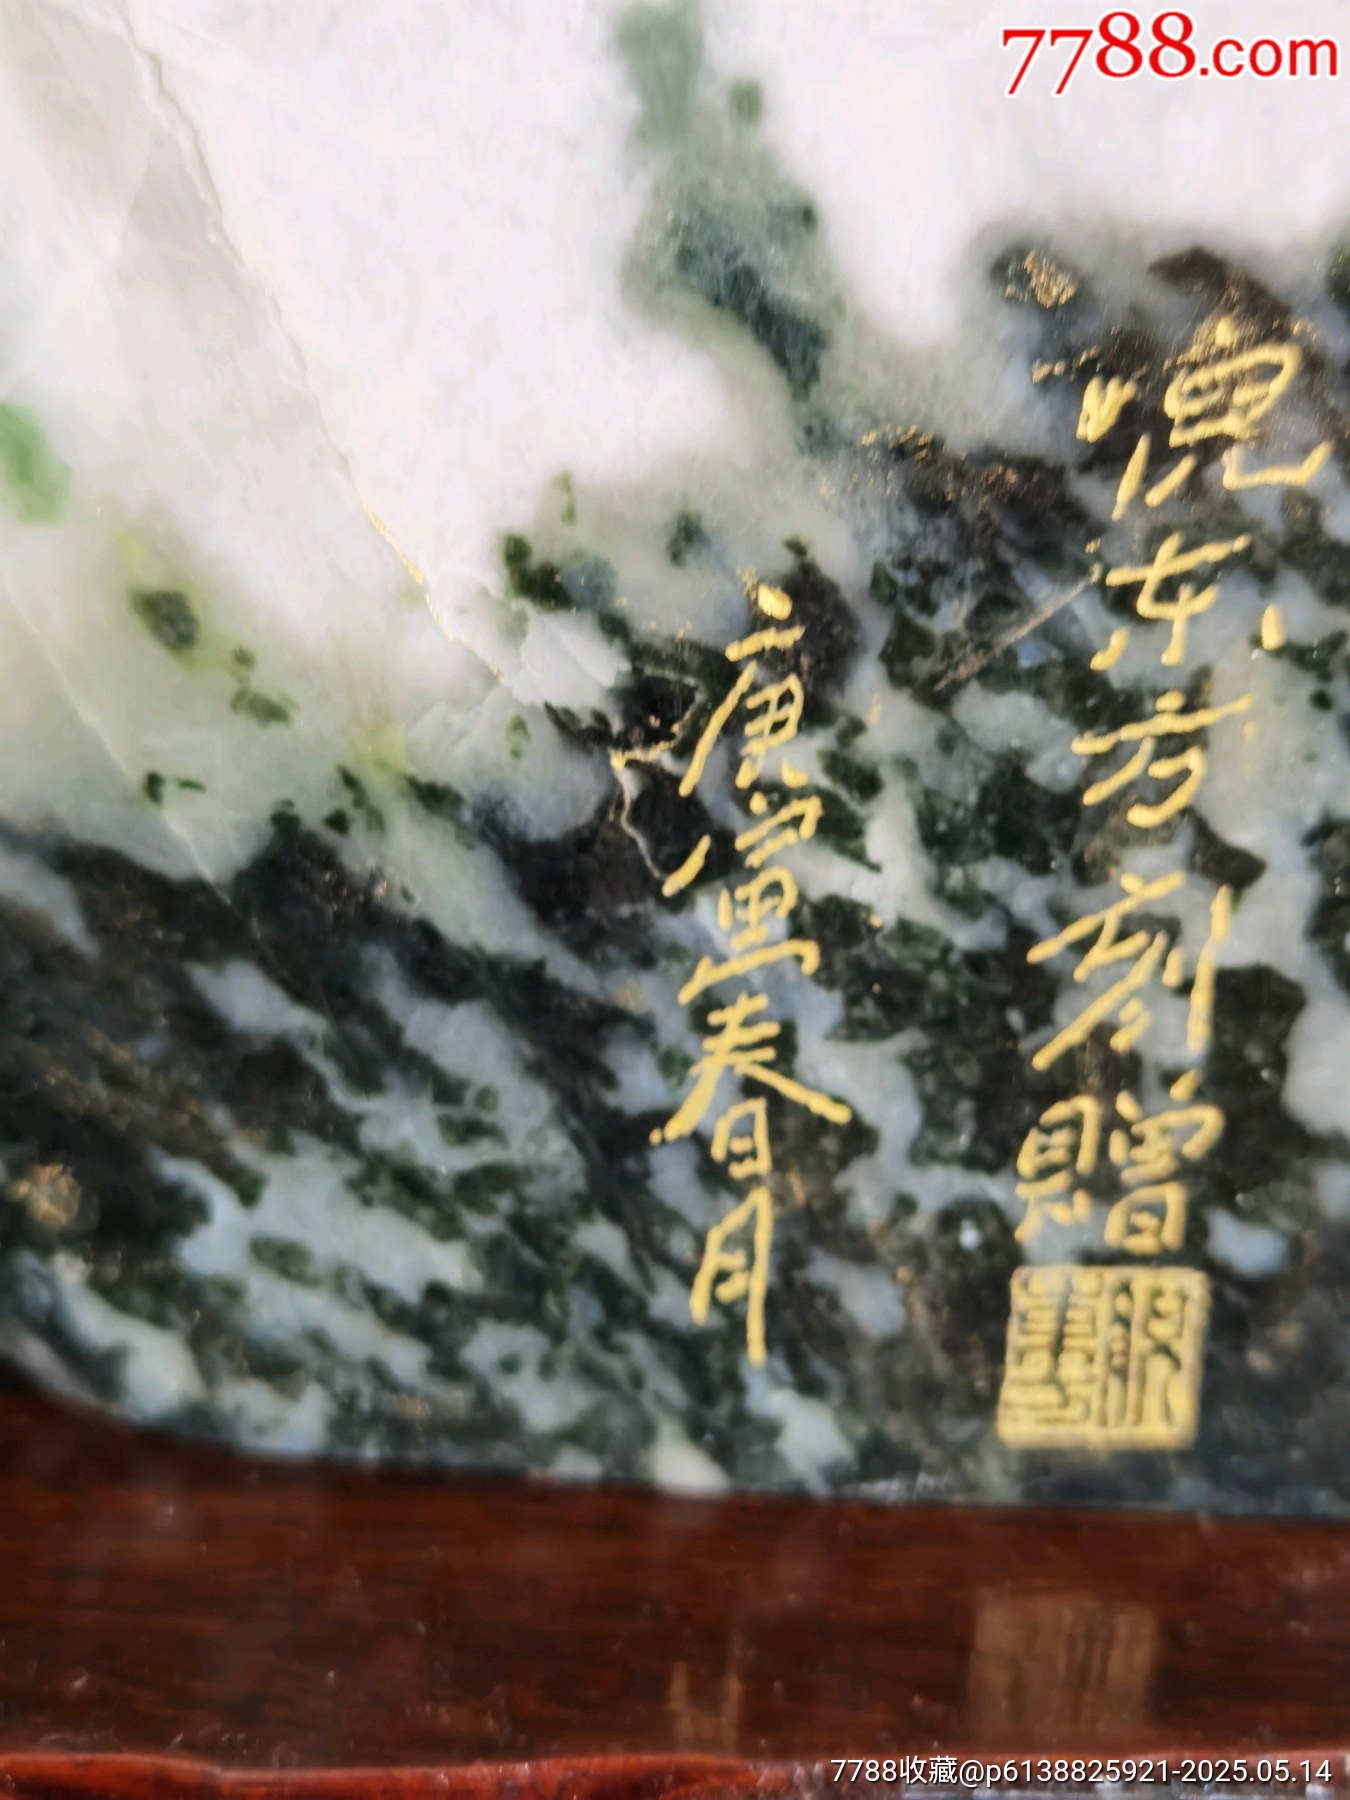 7788.com
东方刻赠
庚寅春月
7788收藏@p6138825921-2025.05.14